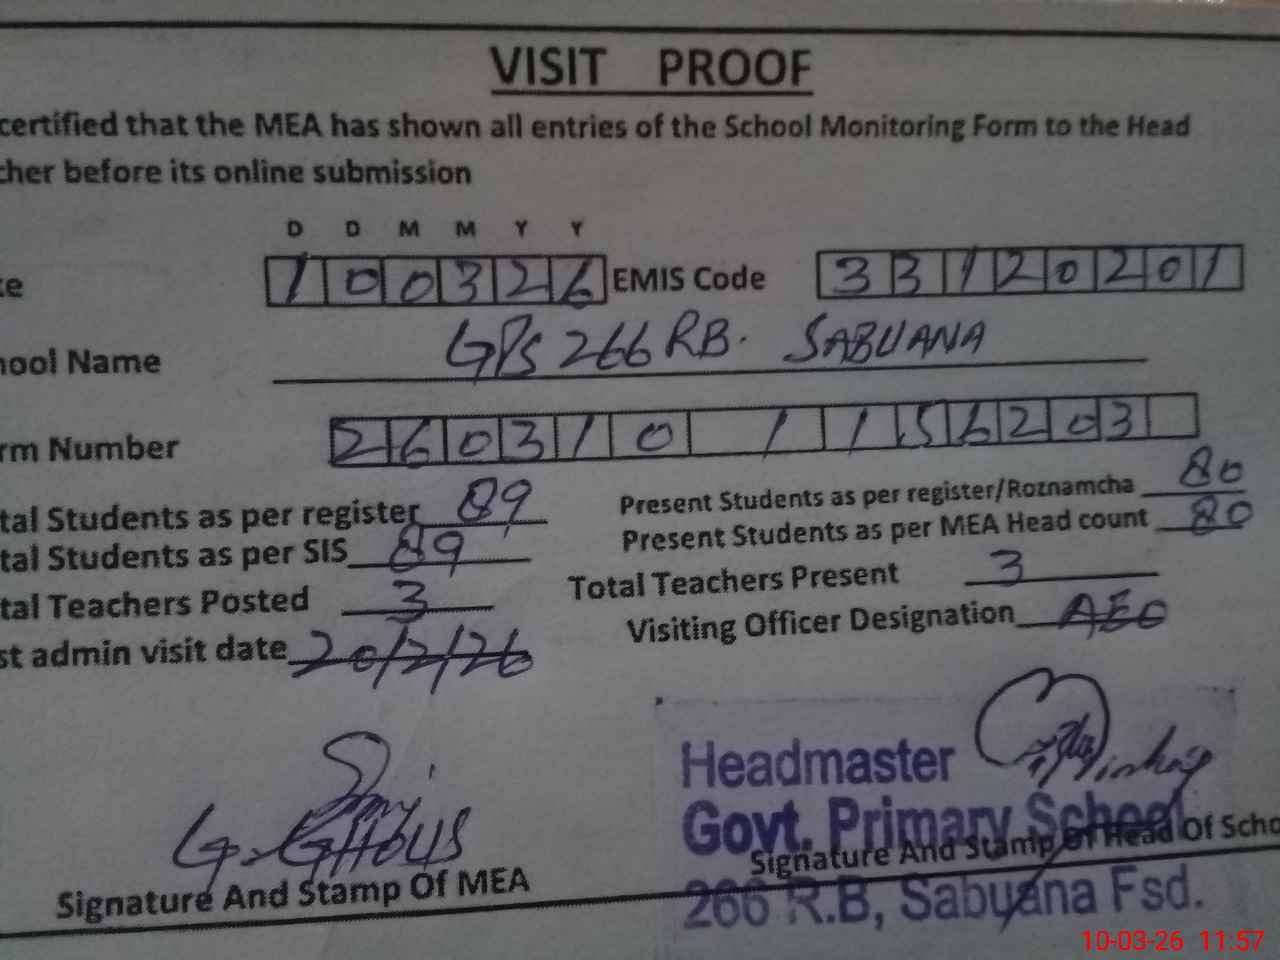 VISIT PROOF
certified that the MEA has shown all entries of the School Monitoring Form to the Head
cher before its online submission
D D M M Y Y
te 1 0 0 3 2 6 EMIS Code 3 3 1 2 0 2 0 1
hool Name GPS 266 RB. SABUANA
rm Number 2 6 0 3 1 0 1 1 5 6 2 0 3
tal Students as per register 89 Present Students as per register/Roznamcha 80
tal Students as per SIS 89 Present Students as per MEA Head count 80
tal Teachers Posted 3 Total Teachers Present 3
st admin visit date 20/2/26 Visiting Officer Designation AEO
Headmaster
Govt. Primary School
G. Ghous
Signature And Stamp Of MEA Signature And Stamp Of Head Of Scho
266 R.B, Sabuana Fsd.
10-03-26 11:57